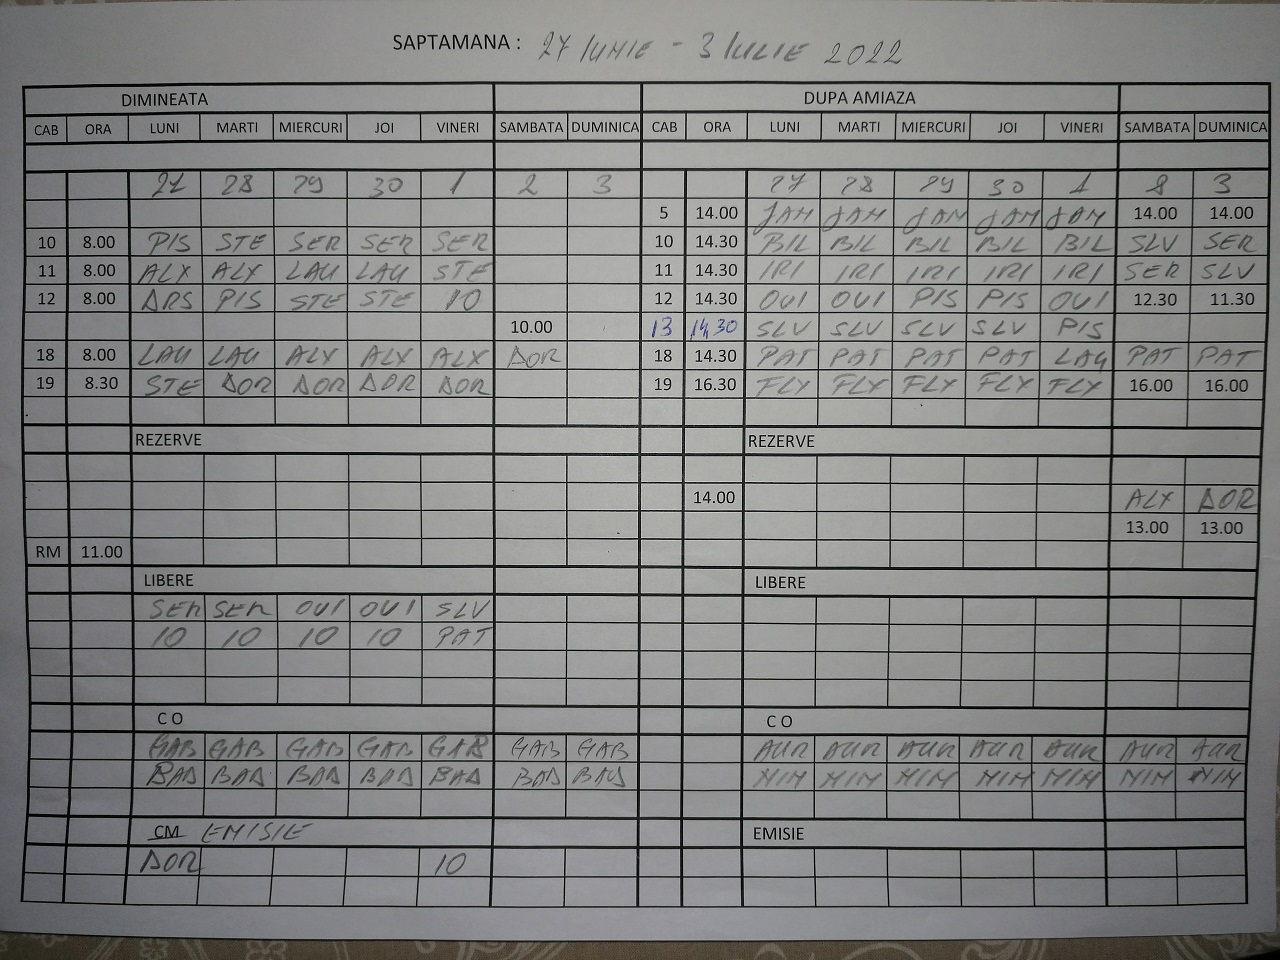 SAPTAMANA : 27 IUNIE - 3 IULIE 2022
DIMINEATA DUPA AMIAZA
CAB ORA LUNI MARTI MIERCURI JOI VINERI SAMBATA DUMINICA CAB ORA LUNI MARTI MIERCURI JOI VINERI SAMBATA DUMINICA
27 28 29 30 1 2 3 27 28 29 30 1 3
5 14.00 JAM JAM JAM JAM JAM 14.00 14.00
10 8.00 PIS STE SER SER SER 10 14.30 BIL BIL BIL BIL BIL SLV SER
11 8.00 ALX ALX LAU LAU STE 11 14.30 IRI IRI IRI IRI IRI SER SLV
12 8.00 ARS PIS STE STE 10 12 14.30 OUI OUI PIS PIS OUI 12.30 11.30
10.00 13 14,30 SLV SLV SLV SLV PIS
18 8.00 LAU LAU ALX ALX ALX DOR 18 14.30 PAT PAT PAT PAT LAU PAT PAT
19 8.30 STE DOR DOR DOR DOR 19 16.30 FLX FLX FLX FLX FLX 16.00 16.00
REZERVE REZERVE
14.00 ALX DOR
13.00 13.00
RM 11.00
LIBERE LIBERE
SER SER OUI OUI SLV
10 10 10 10 PAT
C O C O
GAB GAB GAB GAB GAB GAB GAB AUR AUR AUR AUR AUR AUR AUR
BAD BAD BAD BAD BAD BAD BAD MIM MIM MIM MIM MIM MIM MIM
CM EMISIE EMISIE
DOR 10